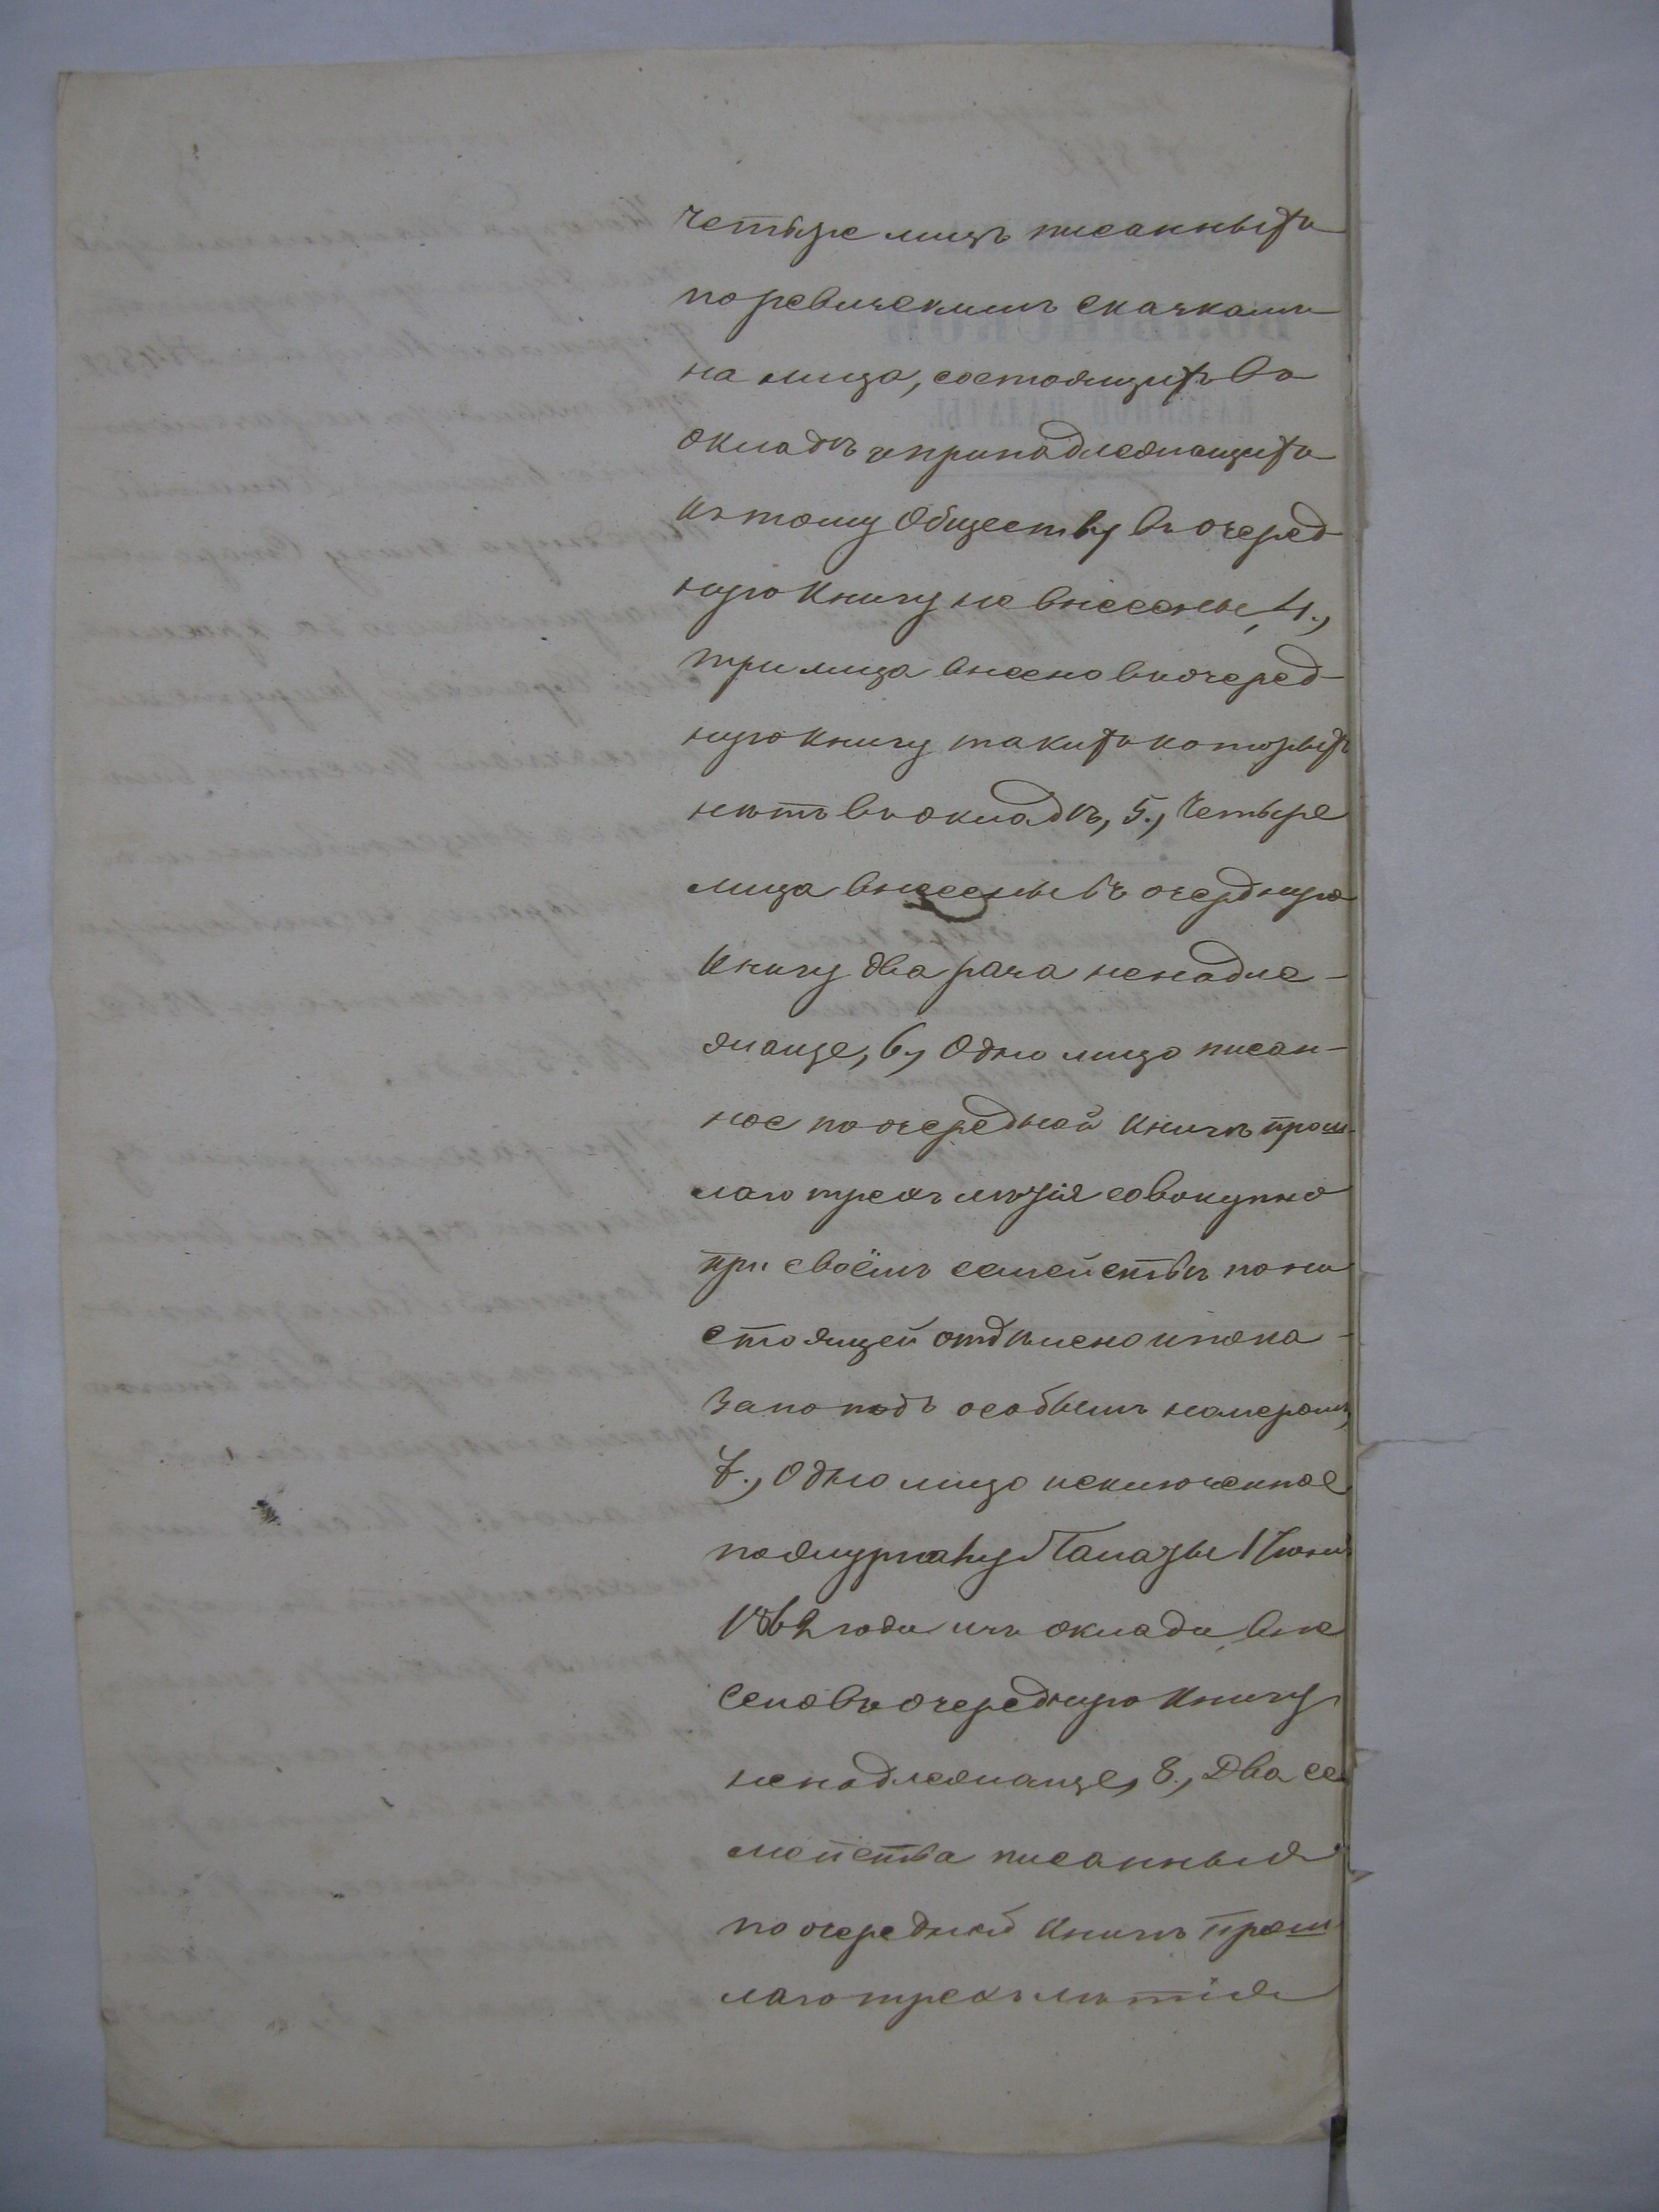 четыре лицъ писанныхъ
поревизскимъ сказкамъ
на лица, состоящихъ въ
окладѣ и принадлежащихъ
къ тому Обществу въ очеред
ную Книгу не внесены, 4.,
три лица внесено въ очеред-
ную книгу такихъ которыхъ
нѣтъ въ окладѣ, 5., Четыре
лица внесены въ очердную
Книгу два раза ненадле-
жаще, 6., Одно лицо писан-
ное по очередной Книгѣ прош-
лаго трехъ лѣтія совокупно
при своёмъ семействѣ по на
стоящей отдѣлено и пока-
зано подъ особымъ номеромъ,
7., Одно лицо исключенное
по журналу Палаты 1 Іюня
1862 года изъ оклада вне
сено въ очередную Книгу
ненадлежаще, 8., Два се
мейства писанныя
по очередной Книгѣ прош
лаго трехъ лѣтія